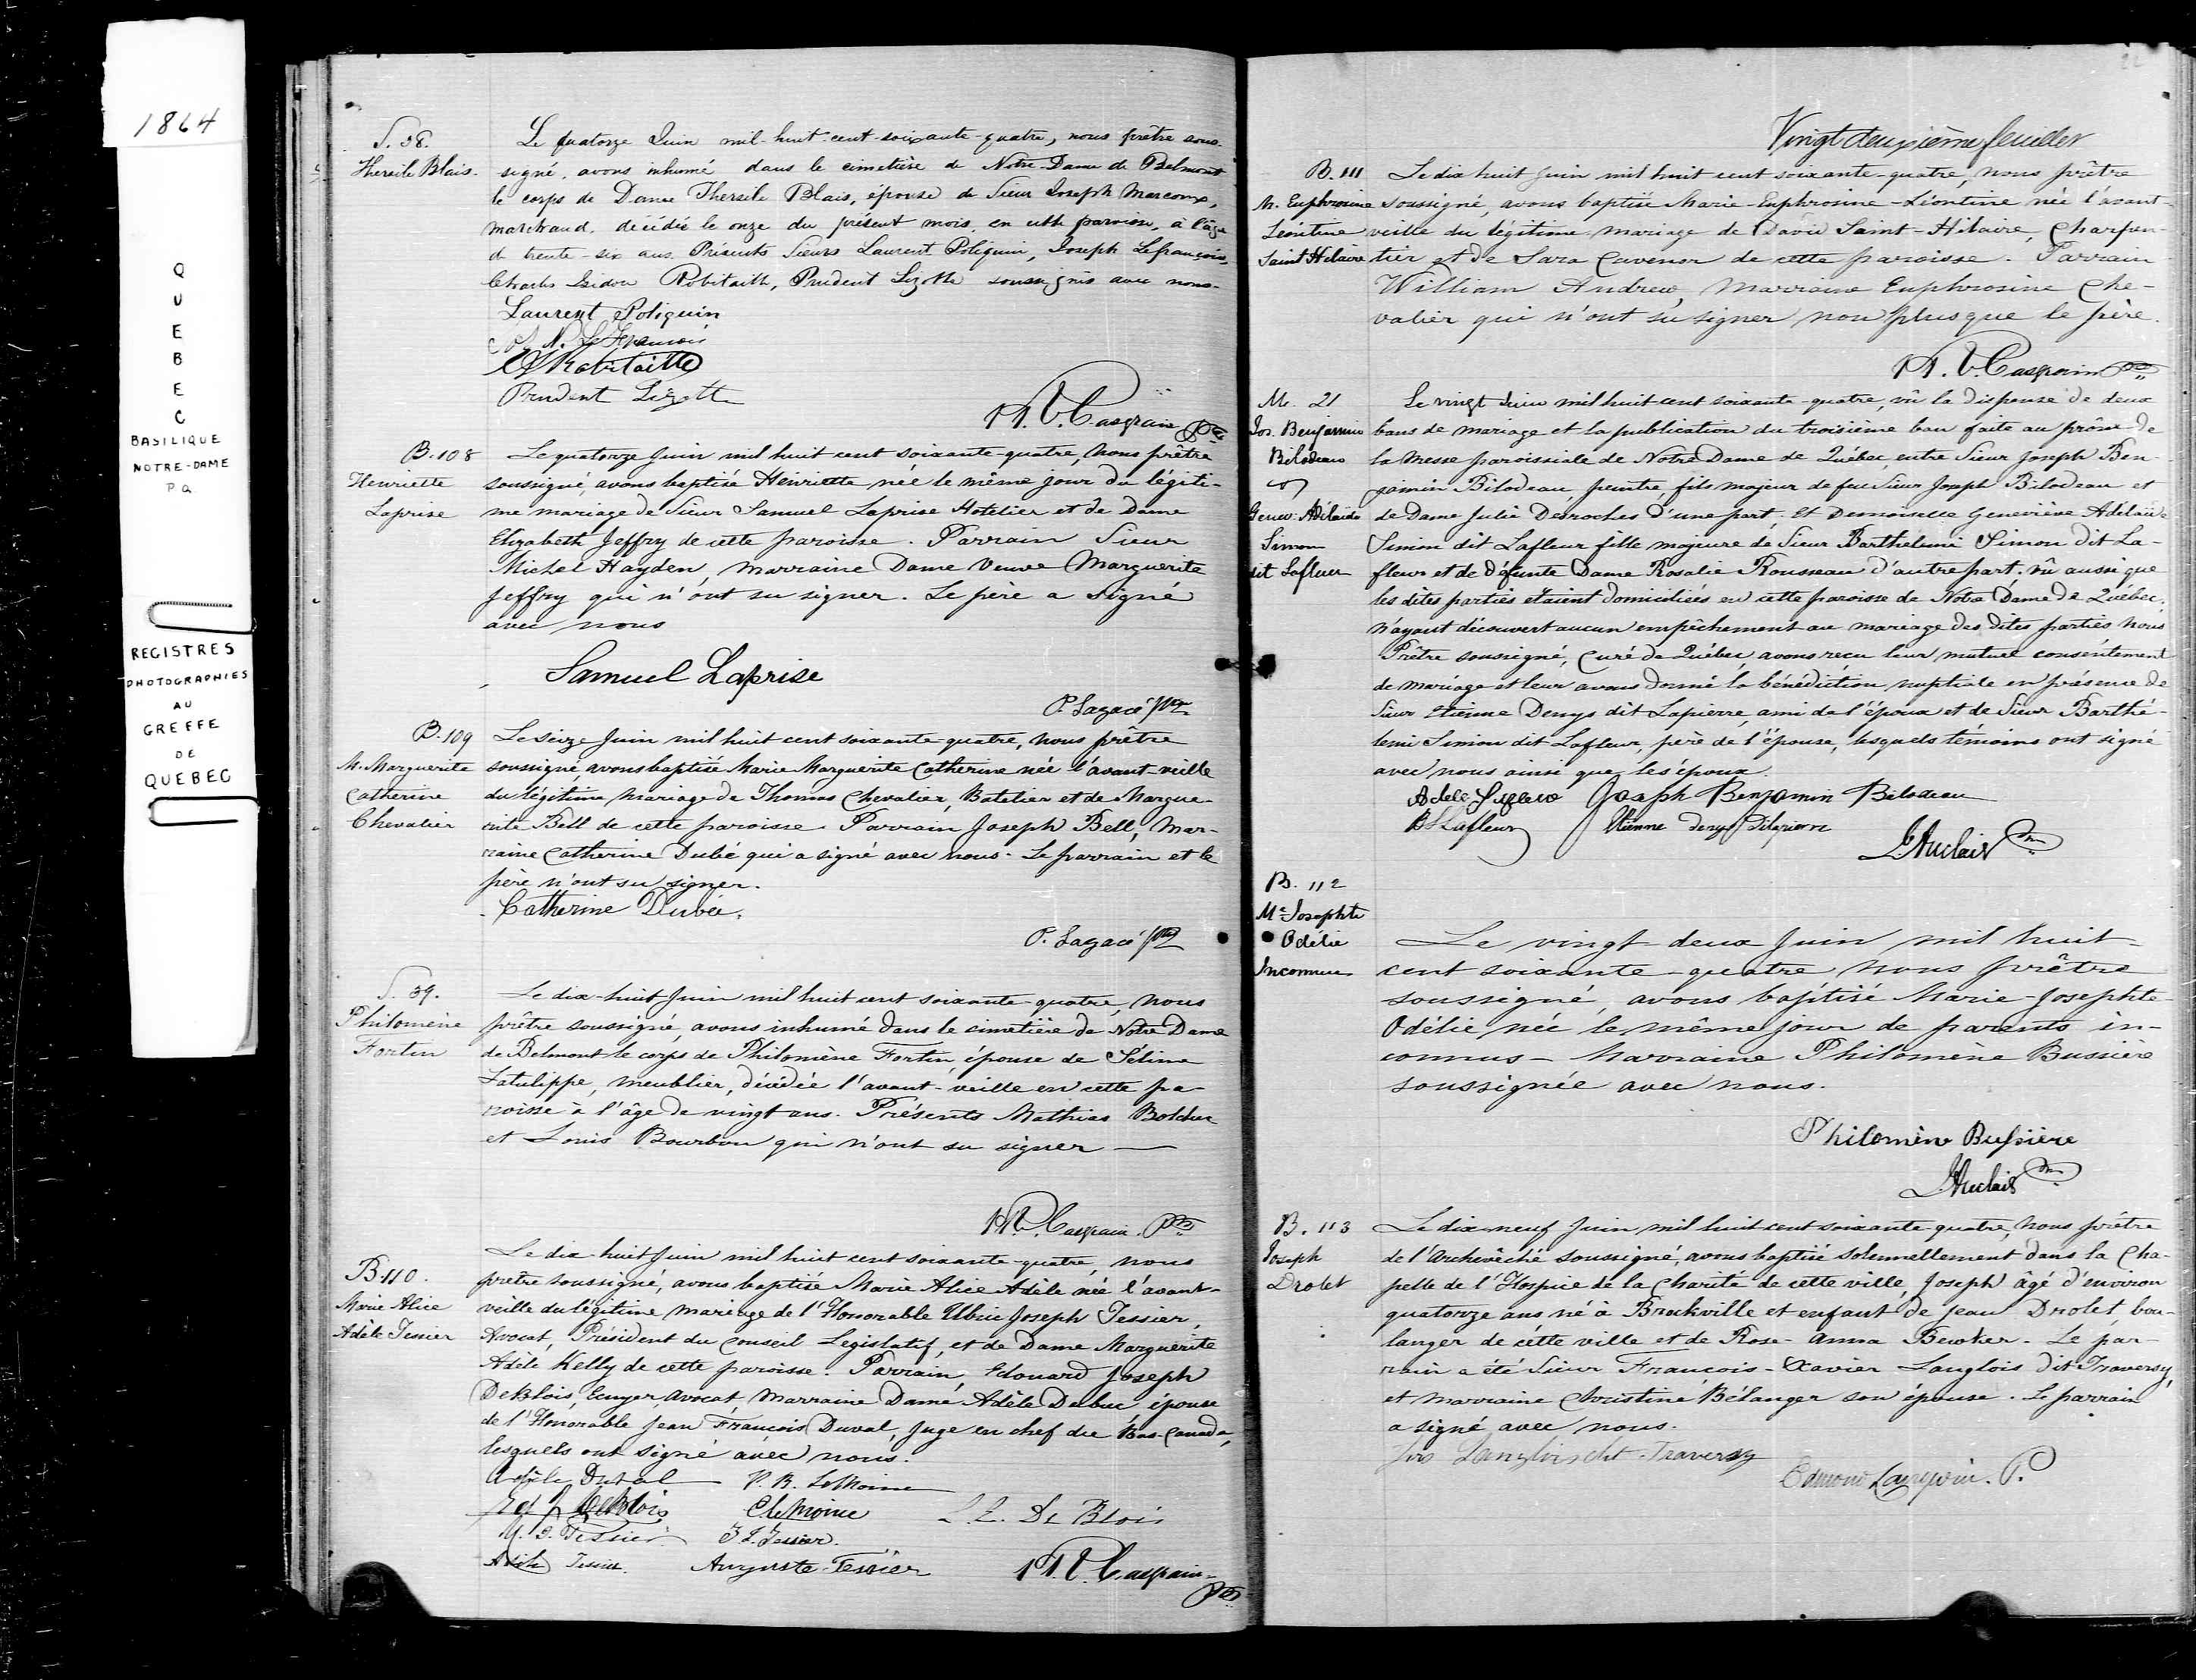 1864
QUEBEC
BASILIQUE
NOTRE-DAME
P.Q.
REGISTRES
PHOTOGRAPHIES
AU
GREFFE
DE
QUEBEC
S. 38.
Thersile Blais.
Le quatorze Juin mil-huit-cent-soixante-quatre, nous prêtre sous-
signé, avons inhumé dans le cimetière de Notre-Dame de Belmont
le corps de Dame Thersile Blais, épouse de Sieur Joseph Marcoux,
marchand, décédée le onze du présent mois, en cette paroisse, à l'âge
de trente-six ans. Présents Sieurs Laurent Poliquin, Joseph Lefrançois,
Charles Isidore Robitaille, Prudent Lizotte soussignés avec nous.
Laurent Poliquin
N. LeFrancois
Robitaille
Prudent Lizotte
Casgrain Ptre
B. 108
Henriette
Laprise
Le quatorze Juin mil huit cent soixante-quatre, nous prêtre
soussigné, avons baptisé Henriette née le même jour du légiti-
me mariage de Sieur Samuel Laprise Hotelier et de Dame
Elizabeth Jeffry de cette paroisse. Parrain Sieur
Michel Hayden, marraine Dame Veuve Marguerite
Jeffry qui n'ont su signer. Le père a signé
avec nous
Samuel Laprise
P. Lagacé Ptre
B. 109
M. Marguerite
Catherine
Chevalier
Le seize Juin mil huit cent soixante-quatre, nous prêtre
soussigné, avons baptisé Marie Marguerite Catherine née l'avant-veille
du légitime mariage de Thomas Chevalier, Batelier et de Margue-
rite Bell de cette paroisse. Parrain Joseph Bell, Mar-
raine Catherine Dubé qui a signé avec nous. Le parrain et le
père n'ont su signer.
Catherine Dubée.
P. Lagacé Ptre
S. 39.
Philomène
Fortin
Le dix-huit Juin mil huit cent soixante-quatre, nous
prêtre soussigné, avons inhumé dans le cimetière de Notre Dame
de Belmont le corps de Philomène Fortin, épouse de Féline
Latulippe, meublier, décédée l'avant-veille en cette pa-
roisse à l'âge de vingt ans. Présents Mathias Bolduc
et Louis Bourbon qui n'ont su signer
Casgrain Ptre
B. 110.
Marie Alice
Adèle Tessier
Le dix-huit Juin mil huit cent soixante-quatre, nous
prêtre soussigné, avons baptisé Marie Alice Adèle née l'avant-
veille du légitime mariage de l'Honorable Ulric Joseph Tessier,
Avocat, Président du Conseil Législatif, et de Dame Marguerite
Adèle Kelly de cette paroisse. Parrain, Edouard Joseph
DeBlois, Ecuyer, Avocat, Marraine Dame Adèle Dubuc, épouse
de l'Honorable Jean François Duval, Juge en chef du Bas-Canada,
lesquels ont signé avec nous.
Adèle Duval V. B. LeMoine
DeBlois C LeMoine De Blois
U. J. Tessier Tessier
Adèle Tessier Auguste Tessier Casgrain Ptre
Vingt deuxième feuillet
B. 111
M. Euphrosine
Léontine
Saint Hilaire
Le dix huit Juin mil huit cent soixante-quatre, nous prêtre
soussigné, avons baptisé Marie-Euphrosine-Léontine née l'avant-
veille du légitime mariage de David Saint-Hilaire, Charpen-
tier et de Sara Cavenor de cette paroisse. Parrain
William Andrew, Marraine Euphrosine Che-
valier qui n'ont su signer non plus que le père.
Casgrain Ptre
M. 21
Jos. Benjamin
Bilodeau
&
Genev. Adélaïde
Simon
dit Lafleur
Le vingt Juin mil huit cent soixante-quatre, vû la dispense de deux
bans de mariage et la publication du troisième ban faite au prône de
la Messe paroissiale de Notre Dame de Québec, entre Sieur Joseph Ben-
jamin Bilodeau, peintre, fils majeur de feu Sieur Joseph Bilodeau et
de Dame Julie Desroches d'une part; Et Demoiselle Geneviève Adélaïde
Simon dit Lafleur fille majeure de Sieur Barthélemi Simon dit La-
fleur et de défunte Dame Rosalie Rousseau d'autre part. vû aussi que
les dites parties étaient domiciliées en cette paroisse de Notre Dame de Québec;
n'ayant découvert aucun empêchement au mariage des dites parties nous
Prêtre soussigné, Curé de Québec avons reçu leur mutuel consentement
de mariage et leur avons donné la bénédiction nuptiale en présence de
Sieur Etienne Denys dit Lapierre, ami de l'époux et de Sieur Barthé-
lemi Simon dit Lafleur, père de l'épouse, lesquels témoins ont signé
avec nous ainsi que les époux.
Adele Lafleur Joseph Benjamin Bilodeau
BS Lafleur Etienne Denys Dilapierre
Auclair
B. 112
Me Josephte
Odélie
Inconnue
Le vingt deux Juin mil huit
cent soixante-quatre nous prêtre
soussigné, avons baptisé Marie-Josephte-
Odélie née le même jour de parents in-
connus - Marraine Philomène Bussière
soussignée avec nous.
Philomène Bussière
Auclair
B. 113
Joseph
Drolet
Le dix-neuf Juin mil huit cent soixante-quatre, nous prêtre
de l'Archevêché soussigné, avons baptisé solennellement dans la Cha-
pelle de l'Hospice de la Charité de cette ville, Joseph âgé d'environ
quatorze ans, né à Brockville et enfant de Jean Drolet, bou-
langer de cette ville et de Rose-Anna Bewker. Le par-
rain a été Sieur François-Xavier Langlois dit Traversy,
et marraine Christine Bélanger son épouse. Le parrain
a signé avec nous.
Langlois dit Traversy
Edmond Langevin. P.